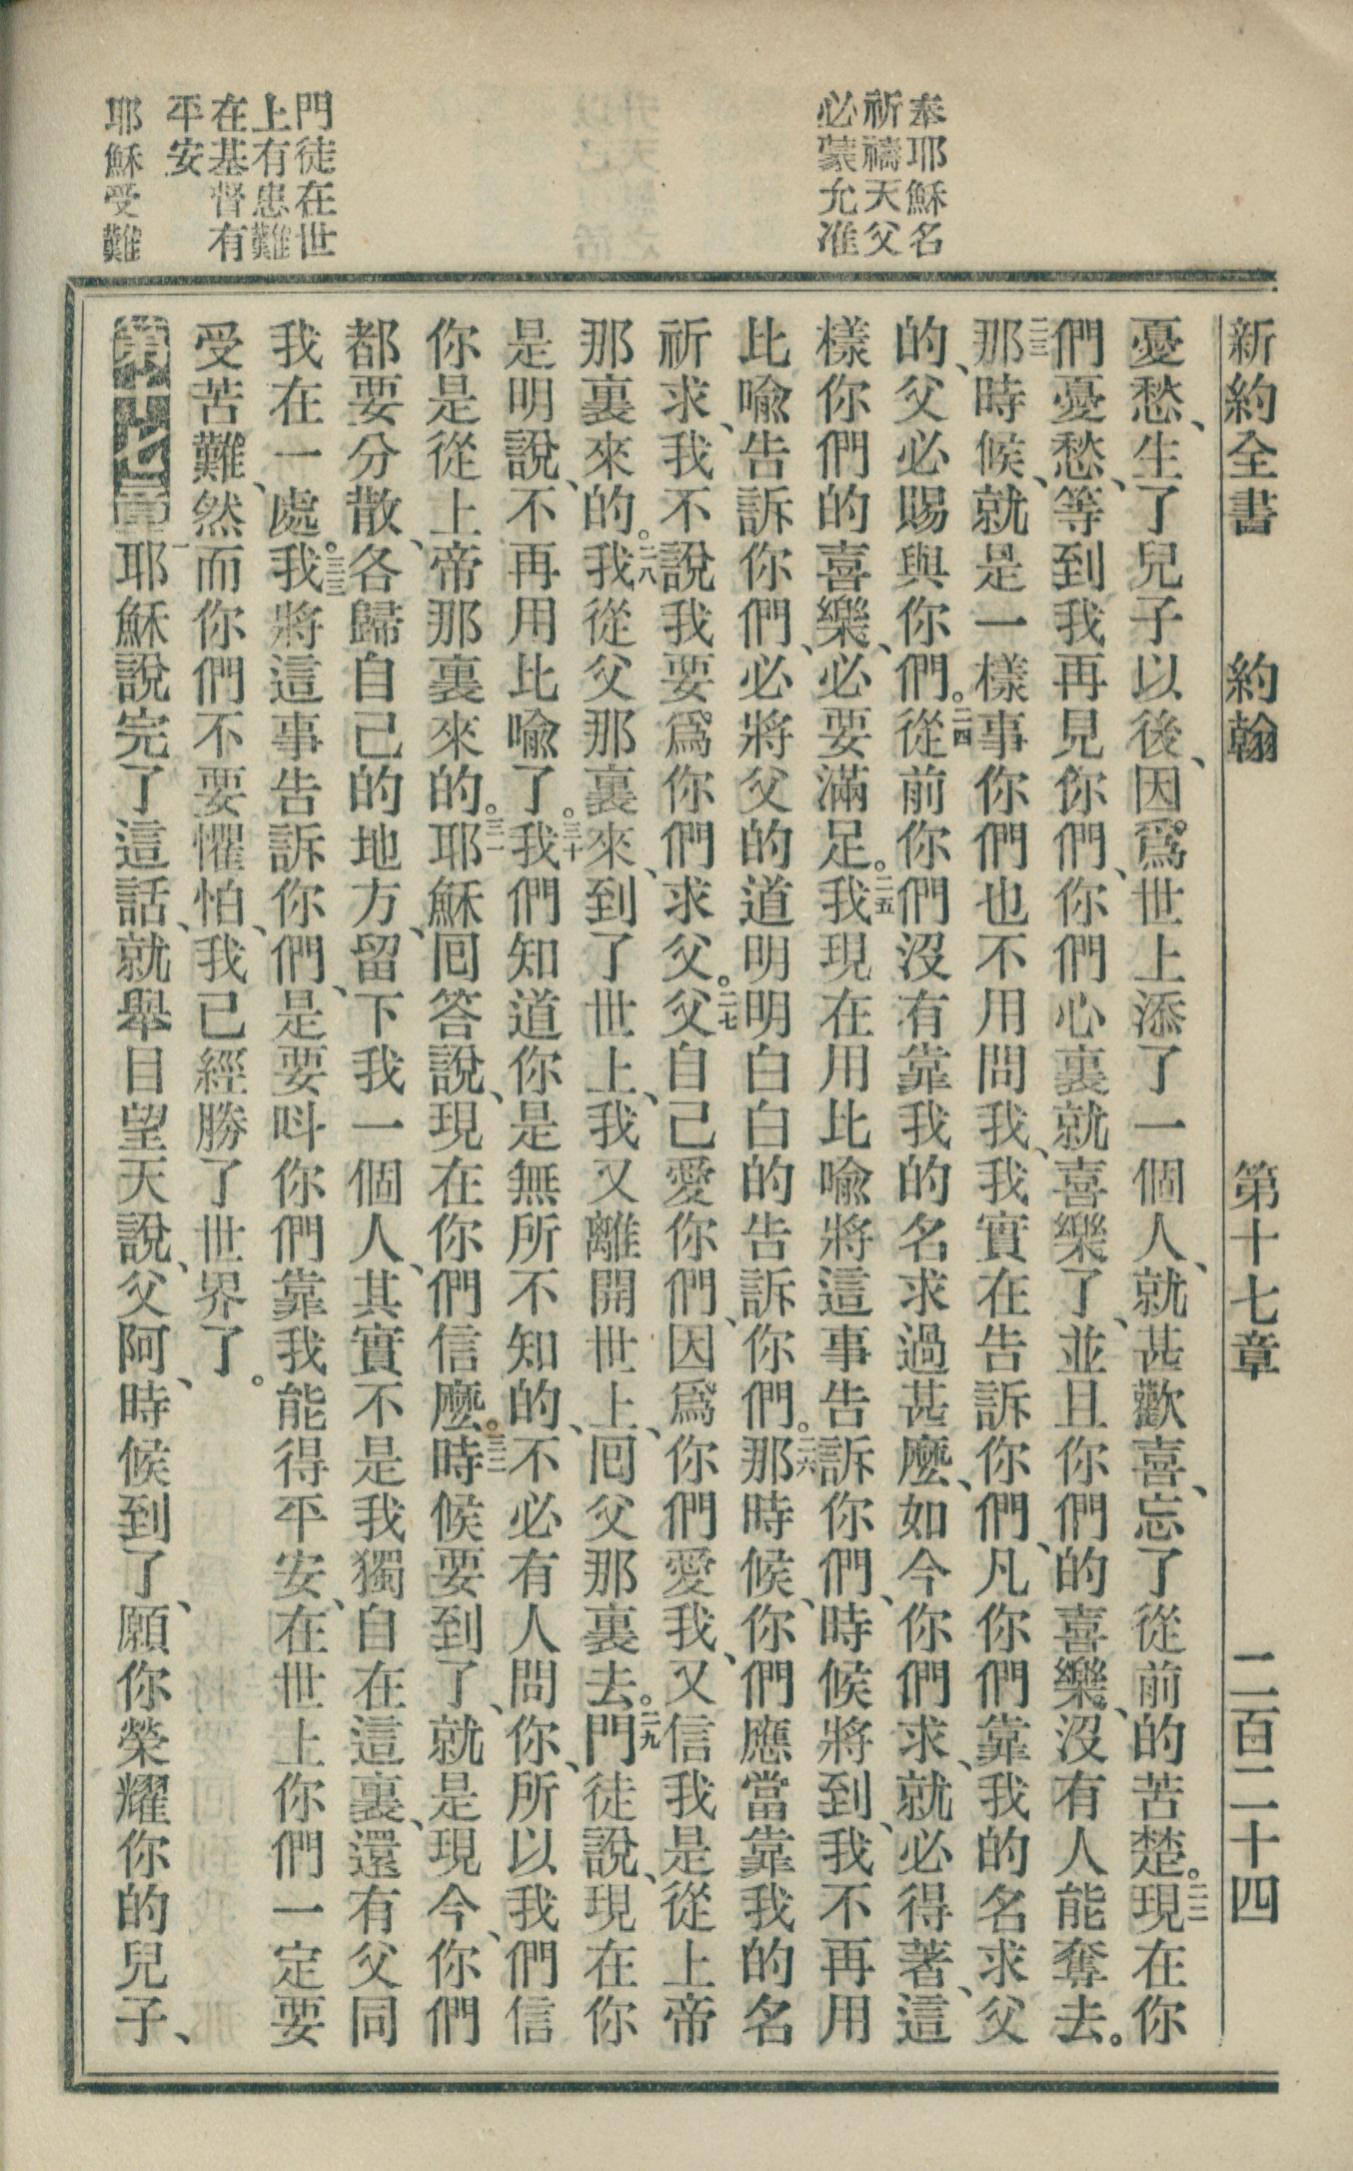 新約全書　約翰　第十七章　二百二十四
奉耶穌名
祈禱天父
必蒙允准
門徒在世
上有患難
在基督有
平安
耶穌受難
憂愁、生了兒子以後、因爲世上添了一個人、就甚歡喜、忘了從前的苦楚。二二現在你
們憂愁、等到我再見你們、你們心裏就喜樂了、並且你們的喜樂、沒有人能奪去。
二三那時候、就是一樣事你們也不用問我、我實在告訴你們、凡你們靠我的名求父
的、父必賜與你們。二四從前你們沒有靠我的名求過甚麼、如今你們求、就必得著、這
樣你們的喜樂、必要滿足。二五我現在用比喻將這事告訴你們、時候將到、我不再用
比喻告訴你們、必將父的道明明白白的告訴你們。二六那時候、你們應當靠我的名
祈求、我不說我要爲你們求父。二七父自己愛你們、因爲你們愛我、又信我是從上帝
那裏來的。二八我從父那裏來、到了世上、我又離開世上、囘父那裏去。二九門徒說、現在你
是明說、不再用比喻了。三十我們知道你是無所不知的、不必有人問你、所以我們信
你是從上帝那裏來的。三一耶穌囘答說、現在你們信麼。三二時候要到了、就是現今、你們
都要分散、各歸自己的地方、留下我一個人、其實不是我獨自在這裏、還有父同
我在一處。三三我將這事告訴你們、是要呌你們靠我能得平安、在世上你們一定要
受苦難、然而你們不要懼怕、我已經勝了世界了。
第十七章一耶穌說完了這話、就舉目望天說、父阿、時候到了、願你榮耀你的兒子、